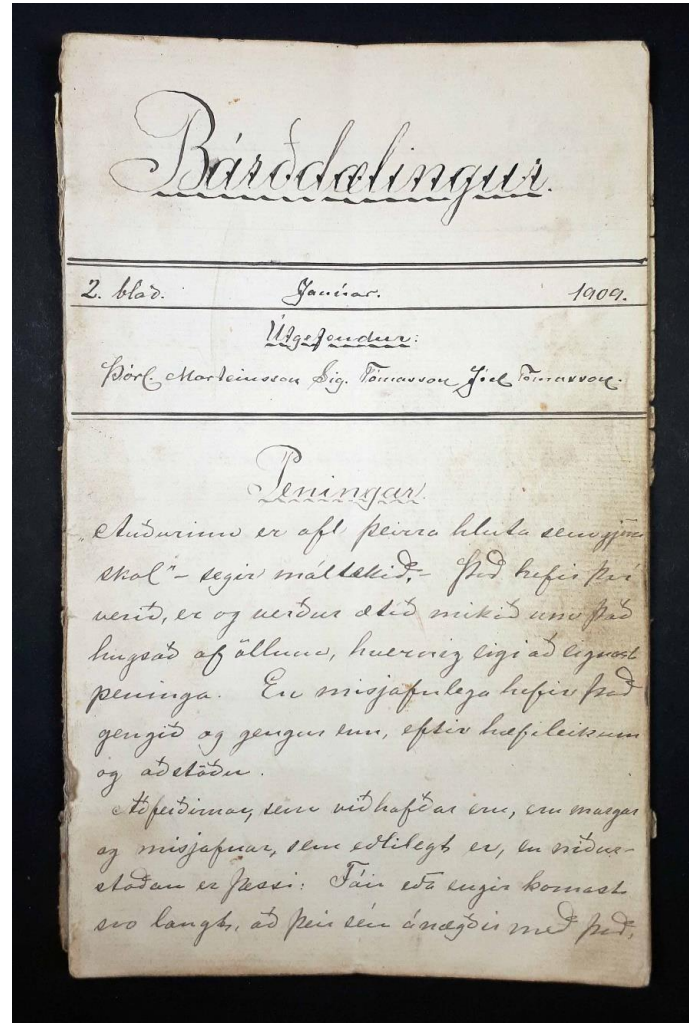 Bárðdælingur.
2. blað. Janúar. 1909.
Útgefendur:
Þórl. Marteinsson Sig. Tómasson Jóel Tómasson.
Peningar.
„Auðurinn er afl þeirra hluta sem gjöra
skal" – segir máltækið. – Það hefir því
verið, er og verður ætíð mikið um það
hugsað af öllum, hvernig eigi að eignast
peninga. En misjafnlega hefir það
gengið og gengur enn, eftir hæfileikum
og aðstöðu.
Aðferðirnar, sem viðhafðar eru, eru margar
og misjafnar, sem eðlilegt er, en niður-
staðan er þessi: Fáir eða engir komast
svo langt, að þeir séu ánægðir með það,